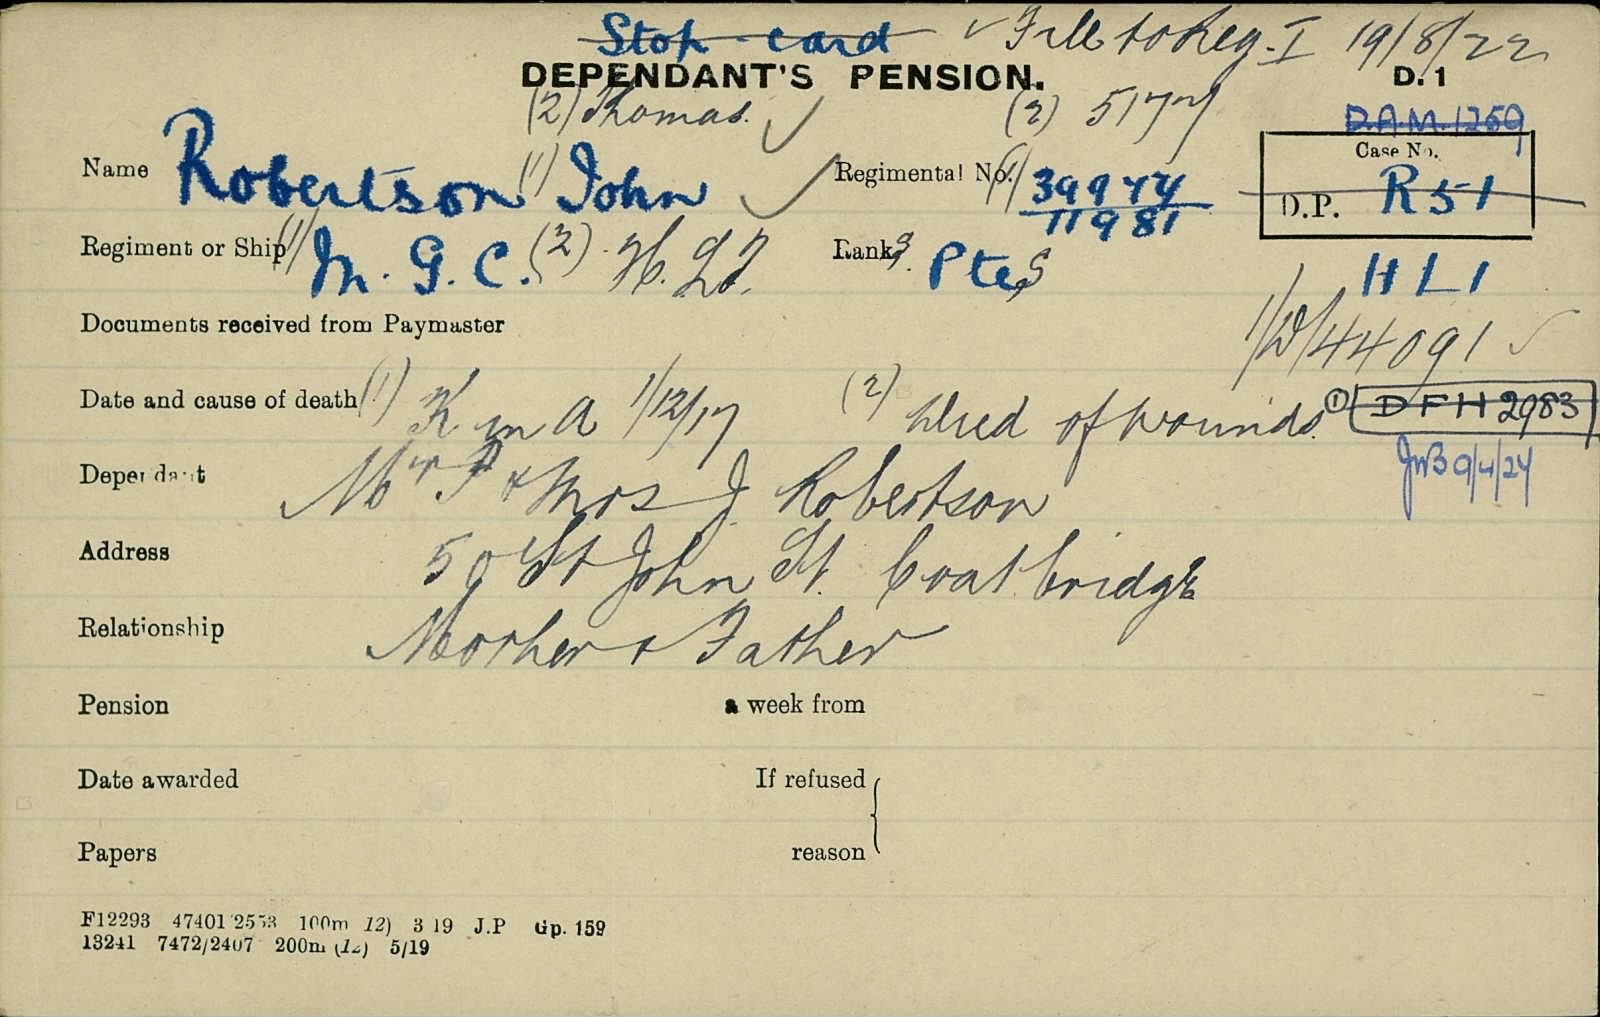 Stop-card ✓ File to Reg. I 19/8/22
DEPENDANT'S PENSION. D. 1
(2) Thomas. ✓ (2) 5177 D.A.M. 1259
Name Robertson (1) John ✓ Regimental No. (1) 39974 Case No.
11981 D.P. R51
Regiment or Ship (1) M. G. C. (2) H. L. I. Rank Ptes HLI
Documents received from Paymaster 1/D/44091 ✓
Date and cause of death (1) K in A 1/12/17 (2) Died of wounds. (1) DFH 2983
JWB 9/4/24
Dependant Mr & Mrs J Robertson
Address 59 St John St. Coatbridge
Relationship Mother & Father
Pension a week from
Date awarded If refused
Papers reason
F12293 47401 2553 100m 12) 3 19 J.P Gp. 159
13241 7472/2407 200m (12) 5/19